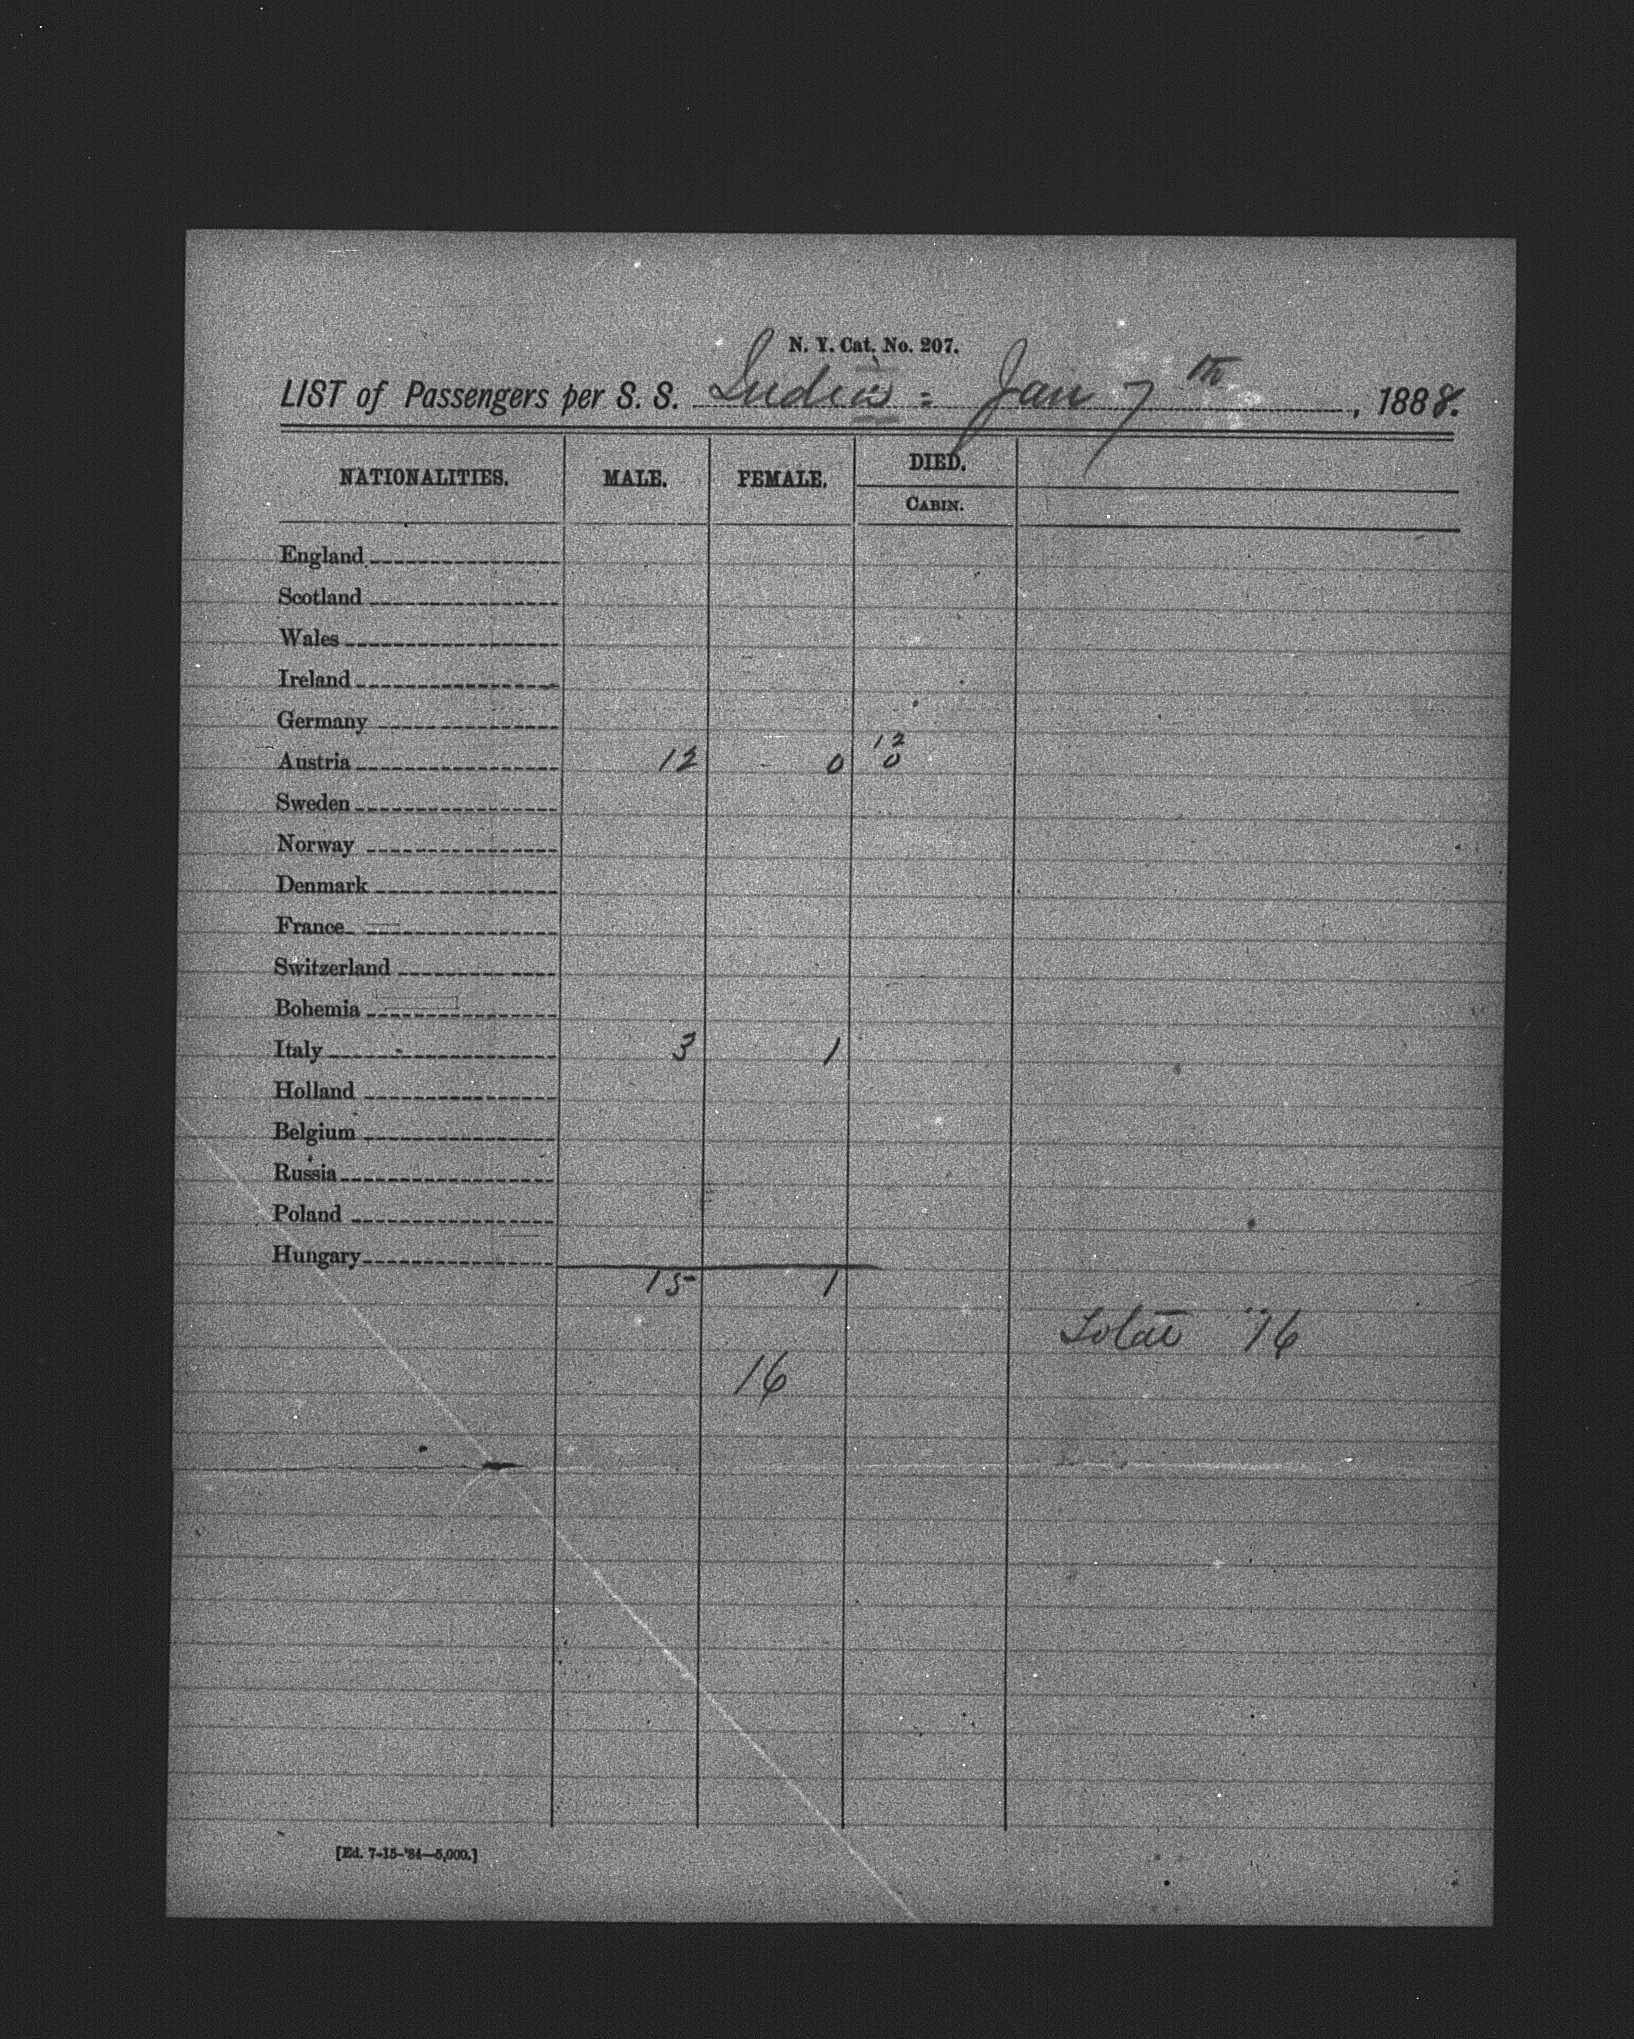 N. Y. Cat. No. 207.
LIST of Passengers per S. S. India = Jan 7th, 1888.
NATIONALITIES. MALE. FEMALE. DIED.
CABIN.
England
Scotland
Wales
Ireland
Germany
12
Austria 12 0 0
Sweden
Norway
Denmark
France
Switzerland
Bohemia
Italy 3 1
Holland
Belgium
Russia
Poland
Hungary
15 1
Total "16
16
[Ed. 7-15-'84—5,000.]